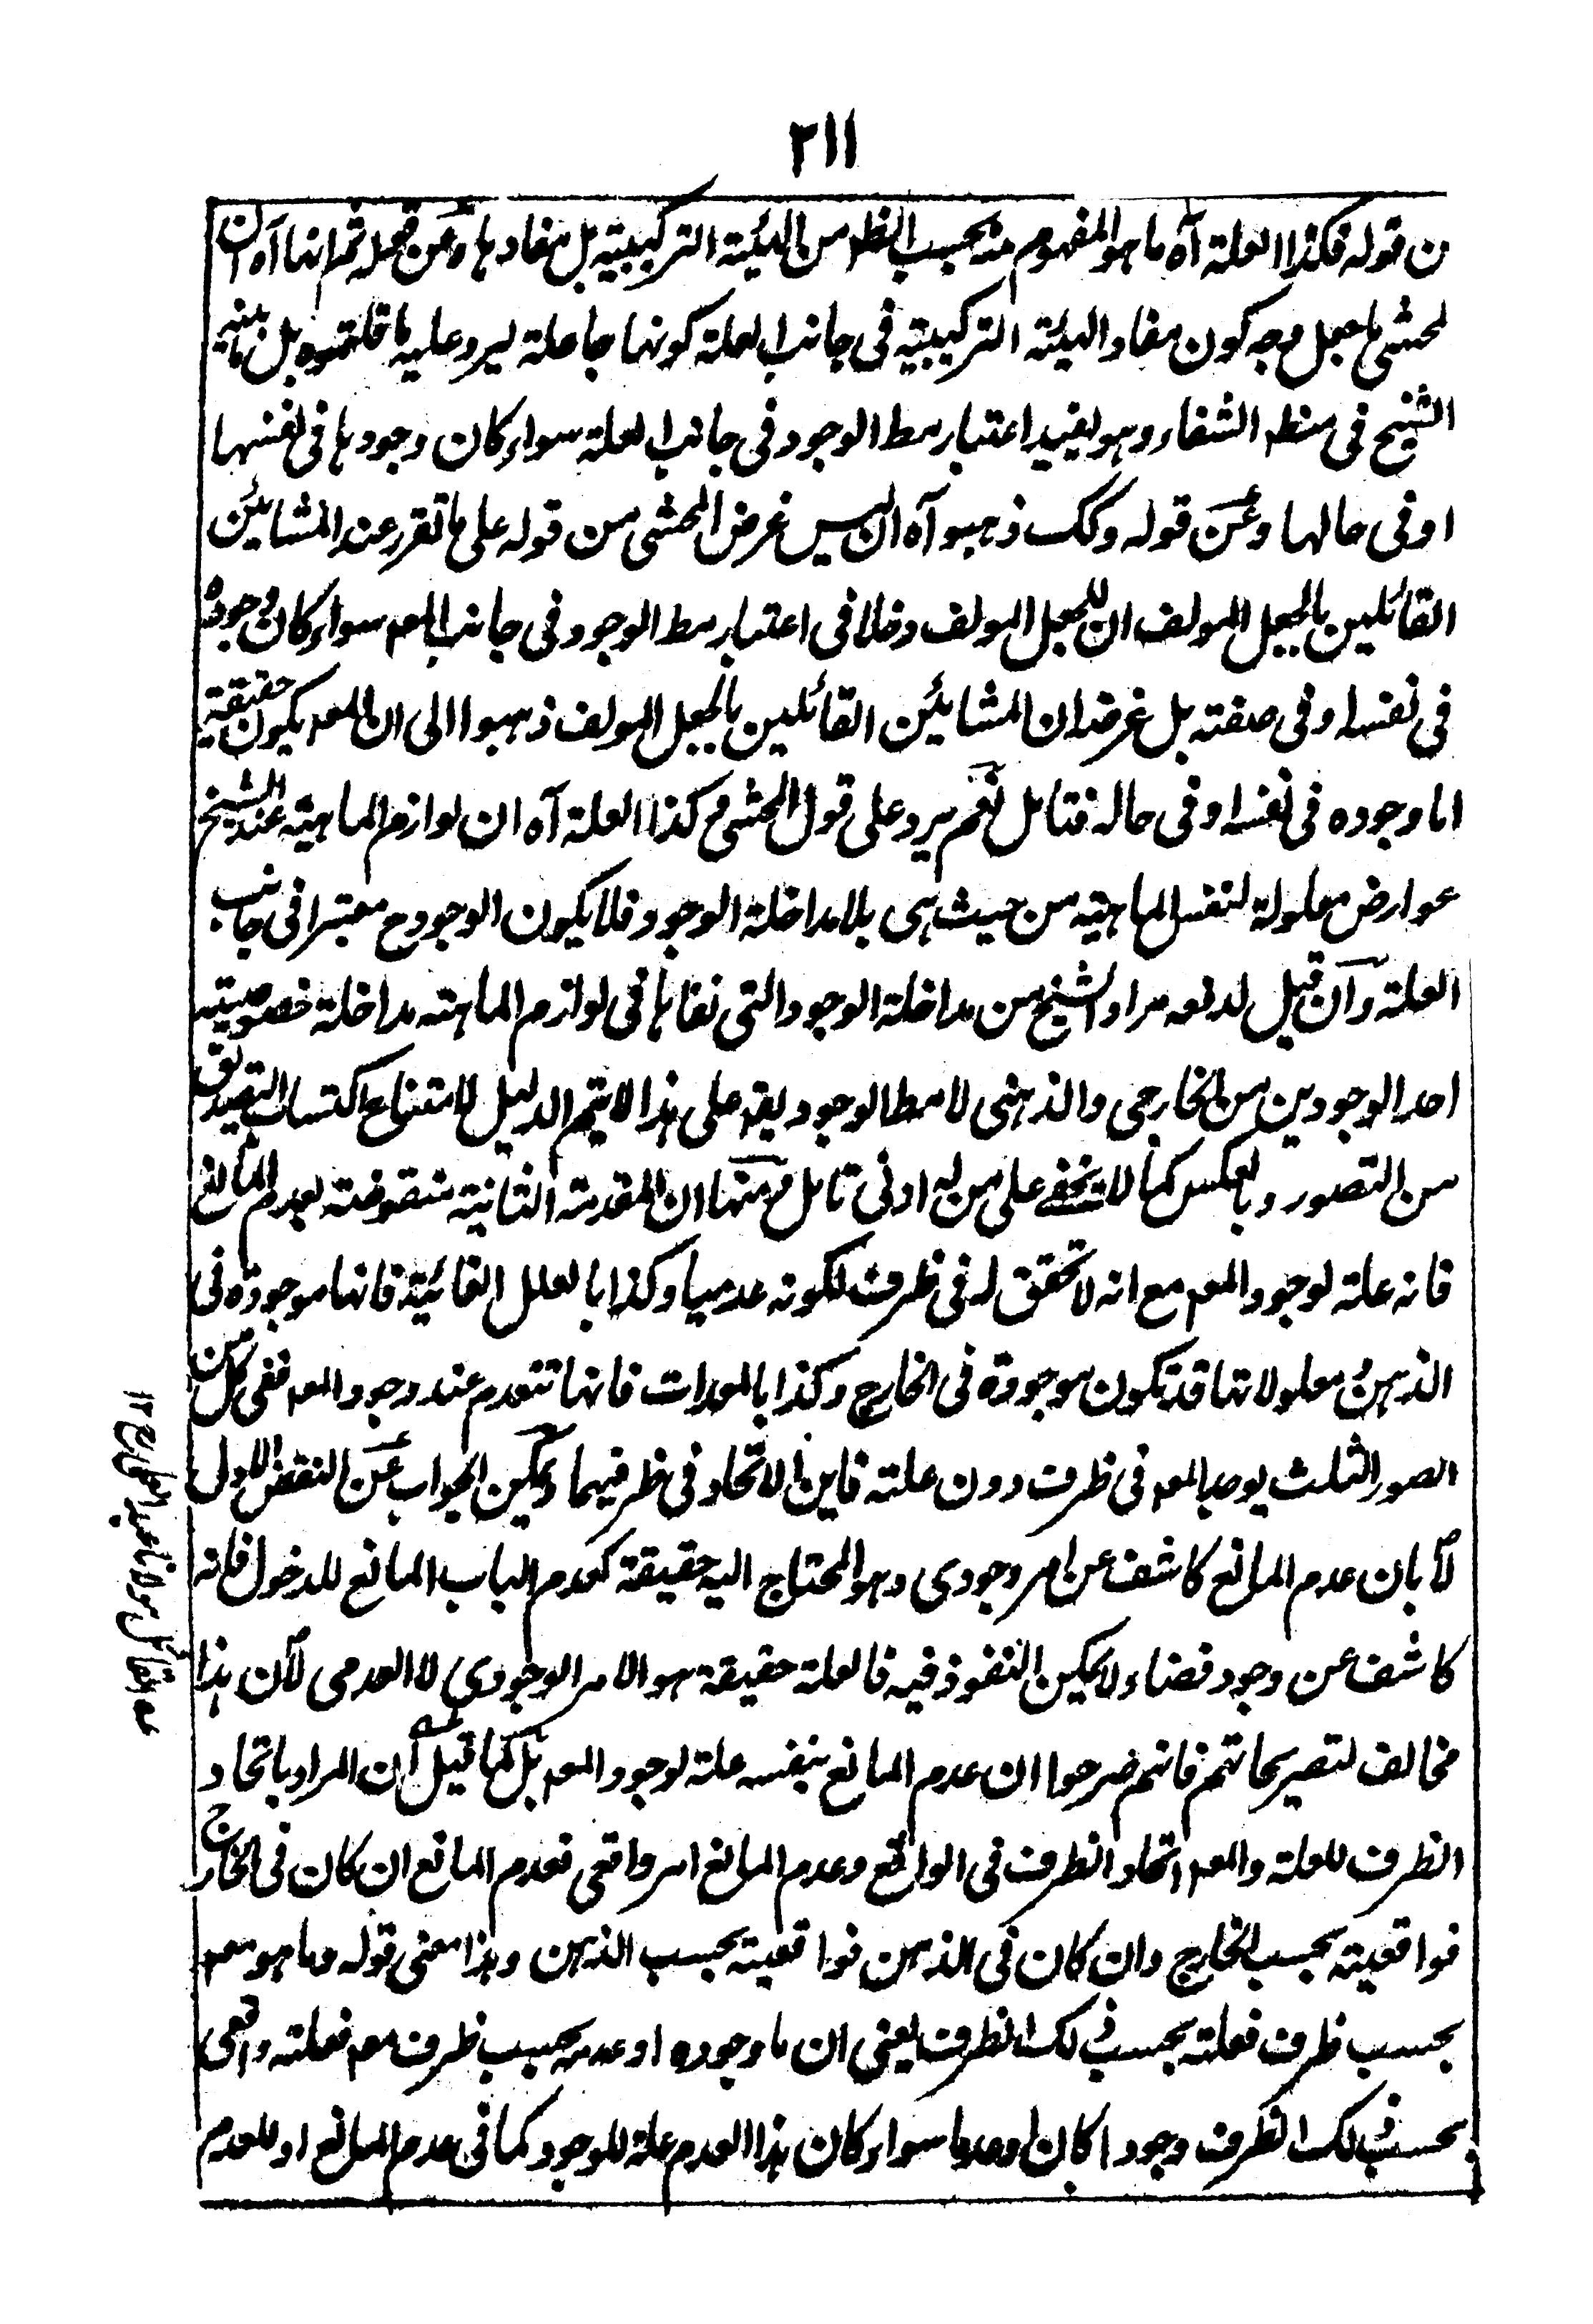 ٢١١
ن قوله فكذا العلة آه ما هو المفهوم منه بحسب النظر من الهيئة التركيبية بل مفادها وعن قوله ثم انها آه ان
لمحشى ما جعل وجه كون مفاد الهيئة التركيبية فى جانب العلة كونها جاعلة ليرد عليه ما قلتموه بل
الشيخ فى منطق الشفاء وهو يفيد اعتبار مط الوجود فى جانب العلة سواء كان وجودها فى نفسها
او فى حالها وعن قوله وكك ذهبوا آه ان ليس غرض المحشى من قوله على ما تقرر عند المشائين
القائلين بالجعل المولف ان للجعل المولف دخلا فى اعتبار مط الوجود فى جانب المعه سواء كان وجوده
فى نفسه او فى صفته بل غرضه ان المشائين القائلين بالجعل المولف ذهبوا الى ان المعه يكون حقيقية
اما وجوده فى نفسه او فى حاله فتامل نعم يرد على قول المحشى وكذا العلة آه ان لوازم الماهية عند الشيخ
عوارض معلولة لنفس الماهية من حيث هى بلا مداخلة الوجود فلا يكون الوجود ح معتبرا فى جانب
العلة وان قيل لدفعه مراد الشيخ من مداخلة الوجود التى نفاها فى لوازم الماهية مداخلة خصوصية
احد الوجودين من الخارجى والذهنى لا مط الوجود يقه على هذا لا يتم الدليل لامتناع اكتساب التصديق
من التصور وبالعكس كما لا يخفى على من له ادنى تامل ومنها ان المقدمة الثانية منقوضة بعدم المانع
فانه علة لوجود المعه مع انه لا تحقق له فى ظرف لكونه عدميا وكذا بالعلل الغائية فانها موجودة فى
الذهن ومعلولاتها قد تكون موجودة فى الخارج وكذا بالمعدات فانها تنعدم عند وجود المعه ففى كل من
الصور الثلث يوجد المعه فى ظرف دون علته فاين الاتحاد فى ظرفيهما ويمكن الجواب عن النقض الاول
لا بان عدم المانع كاشف عن امر وجودى وهو المحتاج اليه حقيقة كعدم الباب المانع للدخول فانه
كاشف عن وجود فضاء ولا يمكن النفوذ فيه فالعلة حقيقة هو الامر الوجودى لا العدمى لان هذا
مخالف لتصريحاتهم فانهم صرحوا ان عدم المانع بنفسه علة لوجود المعه بل كما قيل ان المراد باتحاد
الظرف للعلة والمعه اتحاد الظرف فى الواقع وعدم المانع امر واقعى فعدم المانع ان كان فى الخارج
فواقعيته بحسب الخارج وان كان فى الذهن فواقعيته بحسب الذهن وهذا معنى قوله وما هو معه
بحسب ظرف فعلته بحسب ذلك الظرف يعنى ان ما وجوده او عدمه بحسب ظرف معه فعلته واقعى
بحسب ذلك الظرف وجودا كان او عدما سواء كان هذا العدم علة للوجود كما فى عدم المانع او للعدم